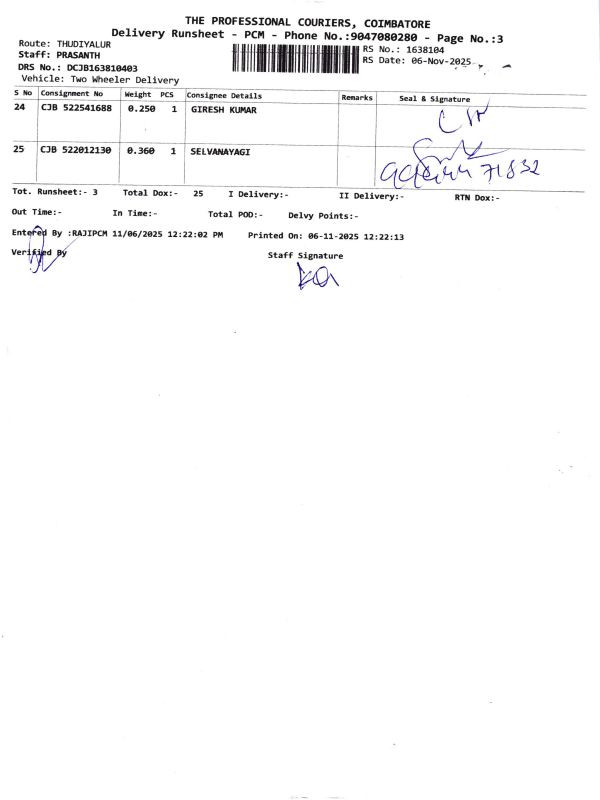 THE PROFESSIONAL COURIERS, COIMBATORE
Delivery Runsheet - PCM - Phone No.:9047080280 - Page No.:3
Route: THUDIYALUR
RS No.: 1638104
Staff: PRASANTH
RS Date: 06-Nov-2025
DRS No.: DCJB163810403
Vehicle: Two Wheeler Delivery
S No Consignment No Weight PCS Consignee Details Remarks Seal & Signature
24 CJB 522541688 0.250 1 GIRESH KUMAR
25 CJB 522012130 0.360 1 SELVANAYAGI
71832
Tot. Runsheet:- 3 Total Dox:- 25 I Delivery:- II Delivery:- RTN Dox:-
Out Time:- In Time:- Total POD:- Delvy Points:-
Entered By :RAJIPCM 11/06/2025 12:22:02 PM Printed On: 06-11-2025 12:22:13
Verified By Staff Signature